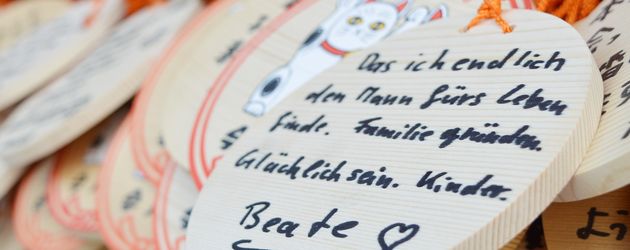 Das ich endlich
den Mann fürs Leben
finde. Familie gründen.
Glücklich sein. Kinder.
Beate ♡
よ